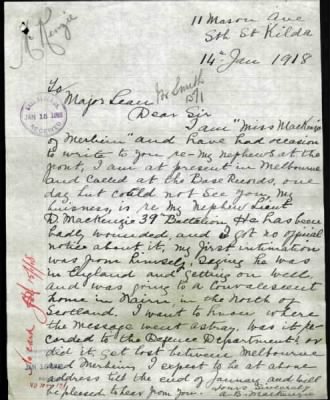 McKenzie
11 Mason Ave
Sth St Kilda
14th Jan 1918
JAN 15 1918
RECEIVED
To
Major Lean
Mr Smith
B/1
Dear Sir
I am "Miss MacKenzie
of Merbein" and have had occasion
to write to you re-my Nephews at the
front, I am at present in Melbourne
and called at the Base Records, one
day but could not See You, my
buisness, is re my Nephew Lieut
D. MacKenzie 39th Battalion He has been
badly wounded, and I got no official
notice about it, my first intimation
was from himself, Saying he was
in England and getting on well,
and was going to a Convalescent
home in Nairn in the North of
Scotland, I want to know where
the Message went astray. was it re-
corded to the Defence Department? or
did it, get lost between Melbourne
and Merbein, I expect to be at above
address till the end of January and will
be pleased to hear from You.
Yours Sincerely
A-B. MacKenzie